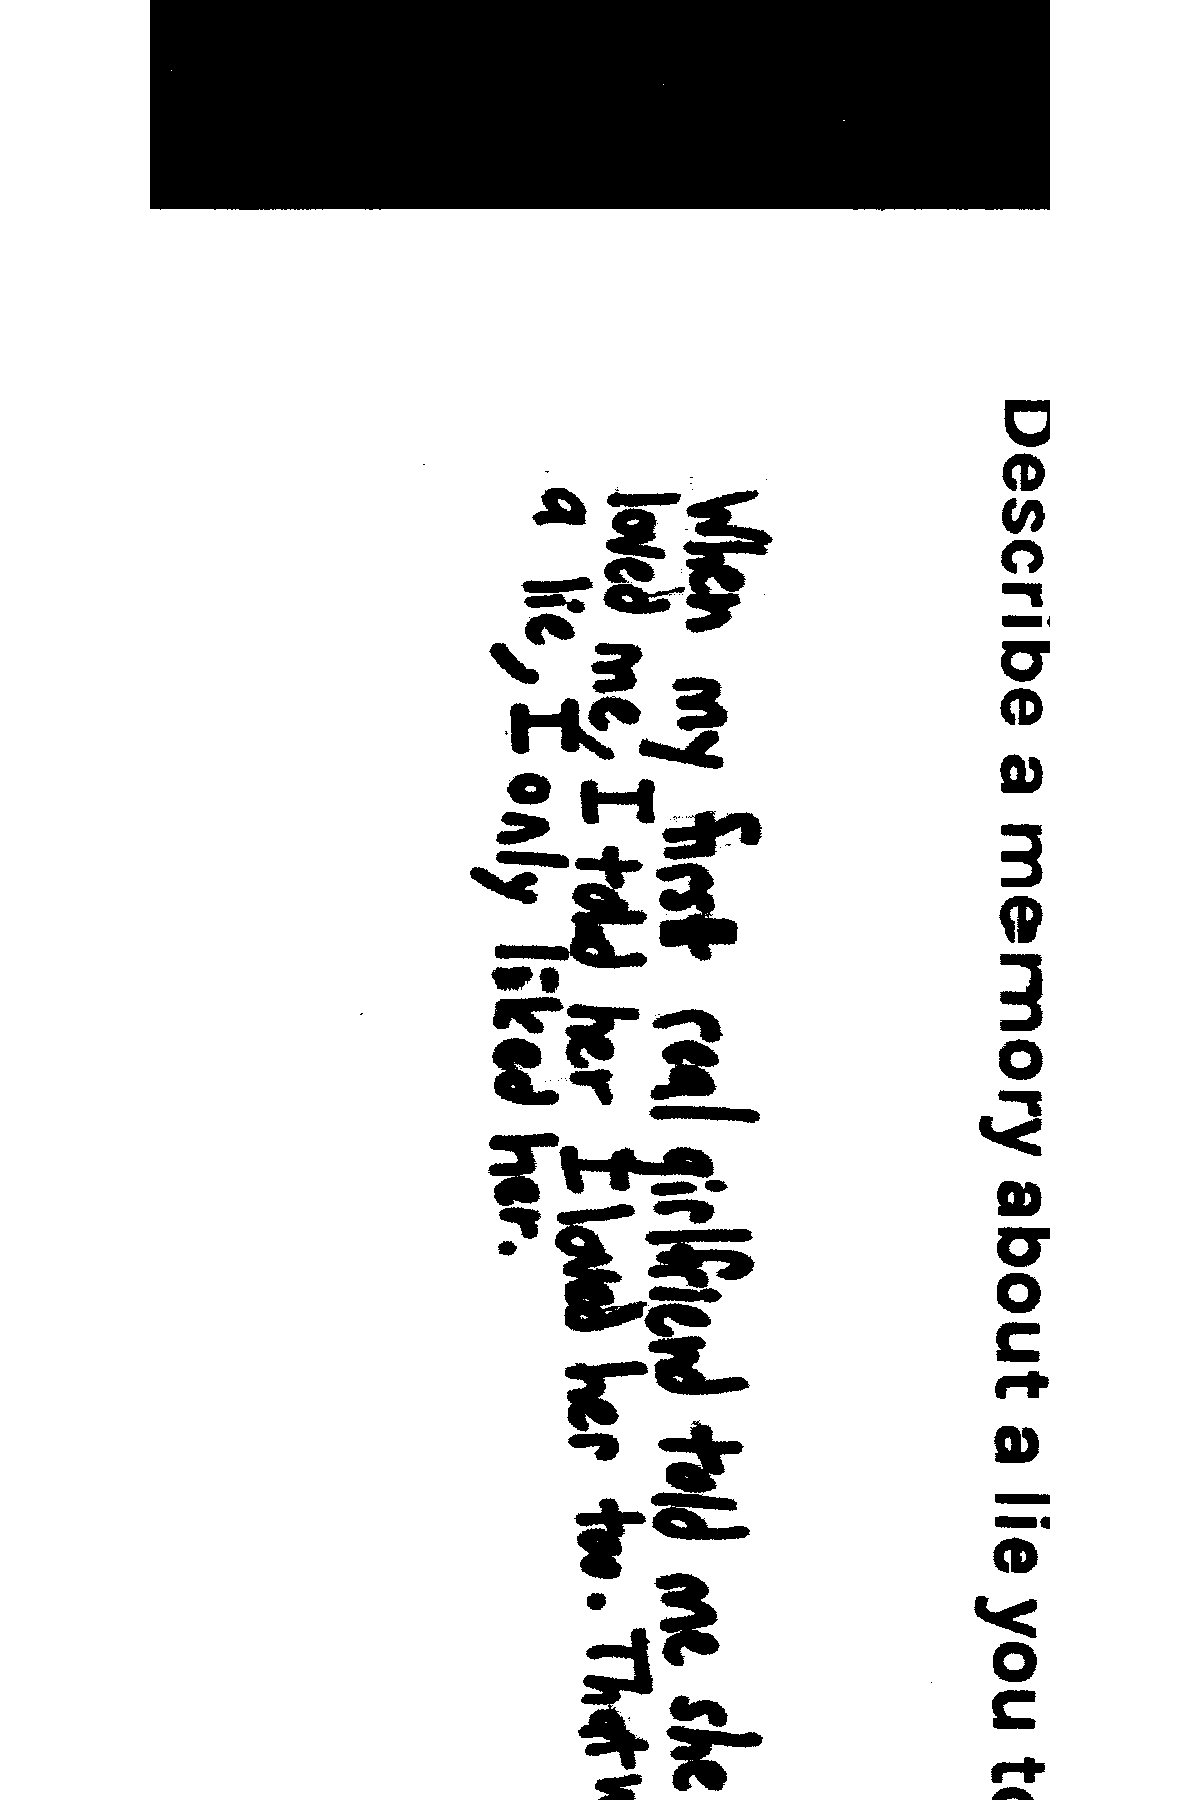 Describe a memory about a lie you
When my first real girlfriend told me she
loved me, I told her I loved her too. That
a lie, I only liked her.